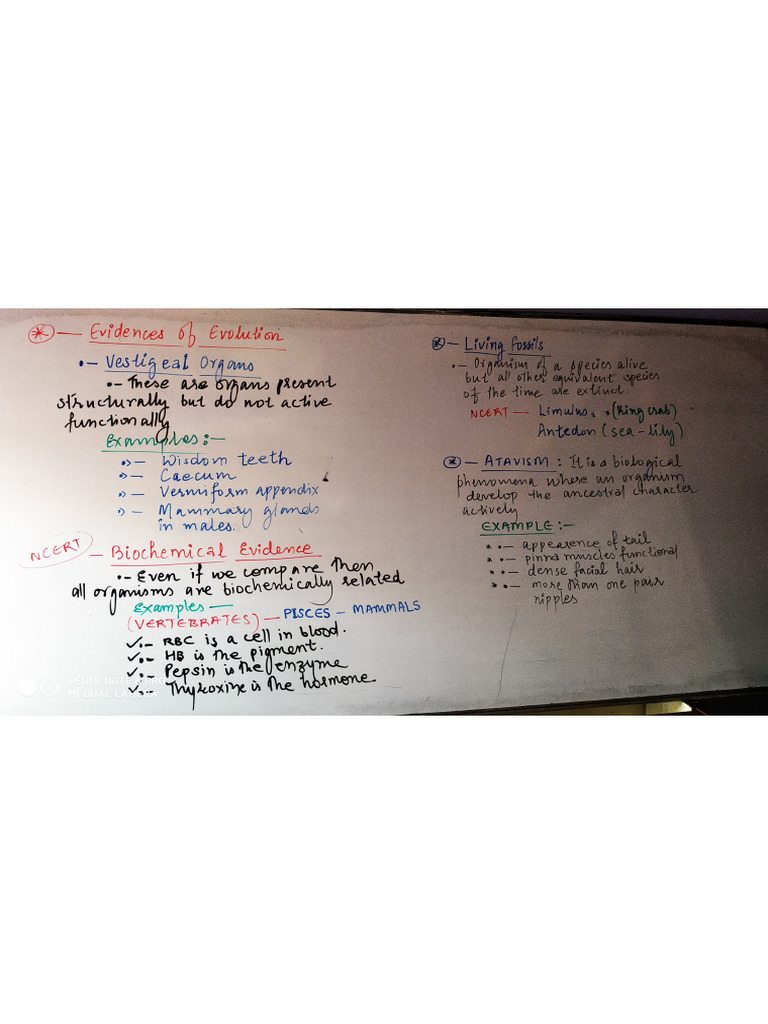 * — Evidences of Evolution
•— Vestigeal Organs
•— These are organs present
structurally but do not active
functionally
Examples:—
•)— Wisdom teeth
•)— Caecum
•)— Vermiform appendix
•)— Mammary glands
in males.
NCERT — Biochemical Evidence
•— Even if we compare then
all organisms are biochemically related
Examples —
(VERTEBRATES) — PISCES — MAMMALS
✓•— RBC is a cell in blood.
✓•— HB is the pigment.
✓•— Pepsin is the enzyme
✓•— Thyroxine is the hormone
REDMI NOTE
MI DUAL CAMERA
* — Living fossils
•— Organism of a species alive
but all other equivalent species
of the time are extinct.
NCERT — Limulus, •(King crab)
Antedon (sea-lily)
* — ATAVISM : It is a biological
phenomena where an organism
develop the ancestral character
actively
EXAMPLE:—
•— appearence of tail
•— pinna muscles functional
•— dense facial hair
•— more than one pair
nipples